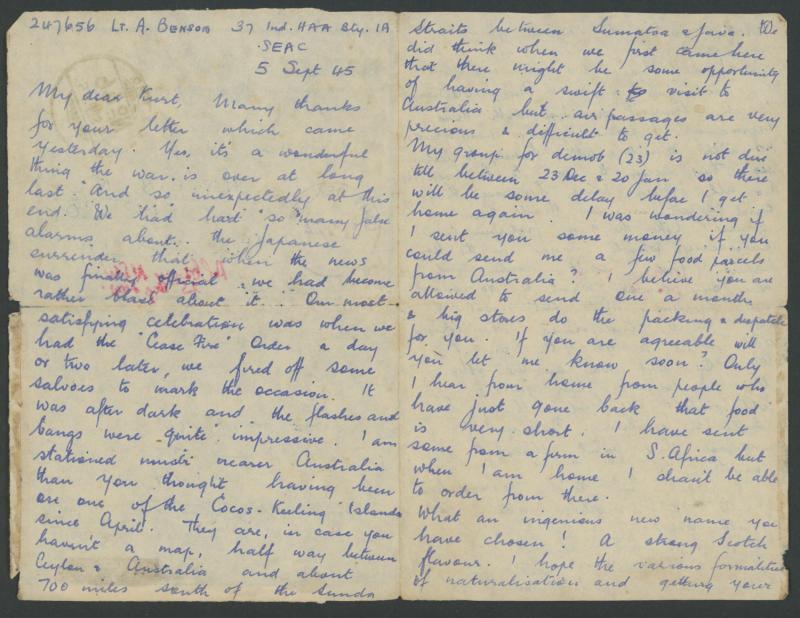 247656 Lt. A. Benson 37 Ind. HAA Bty. IA
SEAC
5 Sept 45
My dear Kurt, Many thanks
for your letter which came
yesterday. Yes, it's a wonderful
thing the war is over at long
last. And so unexpectedly at this
end. We had had so many false
alarms about the Japanese
surrender that when the news
was finally official we had become
rather blasé about it. Our most
satisfying celebration was when we
had the "Cease Fire" Order a day
or two later, we fired off some
salvoes to mark the occasion. It
was after dark and the flashes and
bangs were quite impressive. I am
stationed much nearer Australia
than you thought having been
on one of the Cocos-Keeling Islands
since April. They are, in case you
haven't a map, half way between
Ceylon & Australia and about
700 miles south of the Sunda
Straits between Sumatra & Java. We
did think when we first came here
that there might be some opportunity
of having a swift visit to
Australia but air passages are very
precious & difficult to get.
My group for demob (23) is not due
till between 23 Dec & 20 Jan so there
will be some delay before I get
home again. I was wondering if
I sent you some money if you
could send me a few food parcels
from Australia? I believe you are
allowed to send one a month
& big stores do the packing & dispatch
for you. If you are agreeable will
you let me know soon? Only
I hear from home from people who
have just gone back that food
is very short. I have sent
some from a firm in S. Africa but
when I am home I shan't be able
to order from there.
What an ingenious new name you
have chosen! A strong Scotch
flavour. I hope the various formalities
of naturalisation and getting your